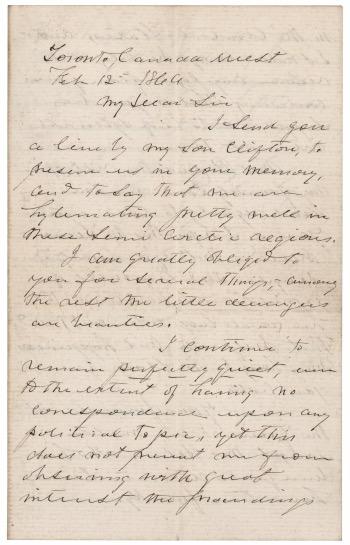 Toronto, Canada West
Feb 12th 1866
My Dear Sir,
I send you
a line by my son Clifton, to
revive us in your memory,
and to say that we are
hybernating pretty well in
these semi Arctic regions.
I am greatly obliged to
you for several things, among
the rest the little
are beauties.
I continue to
remain perfectly quiet, even
to the extent of having no
correspondence upon any
political topic, yet this
does not prevent me from
observing with great
interest the proceedings